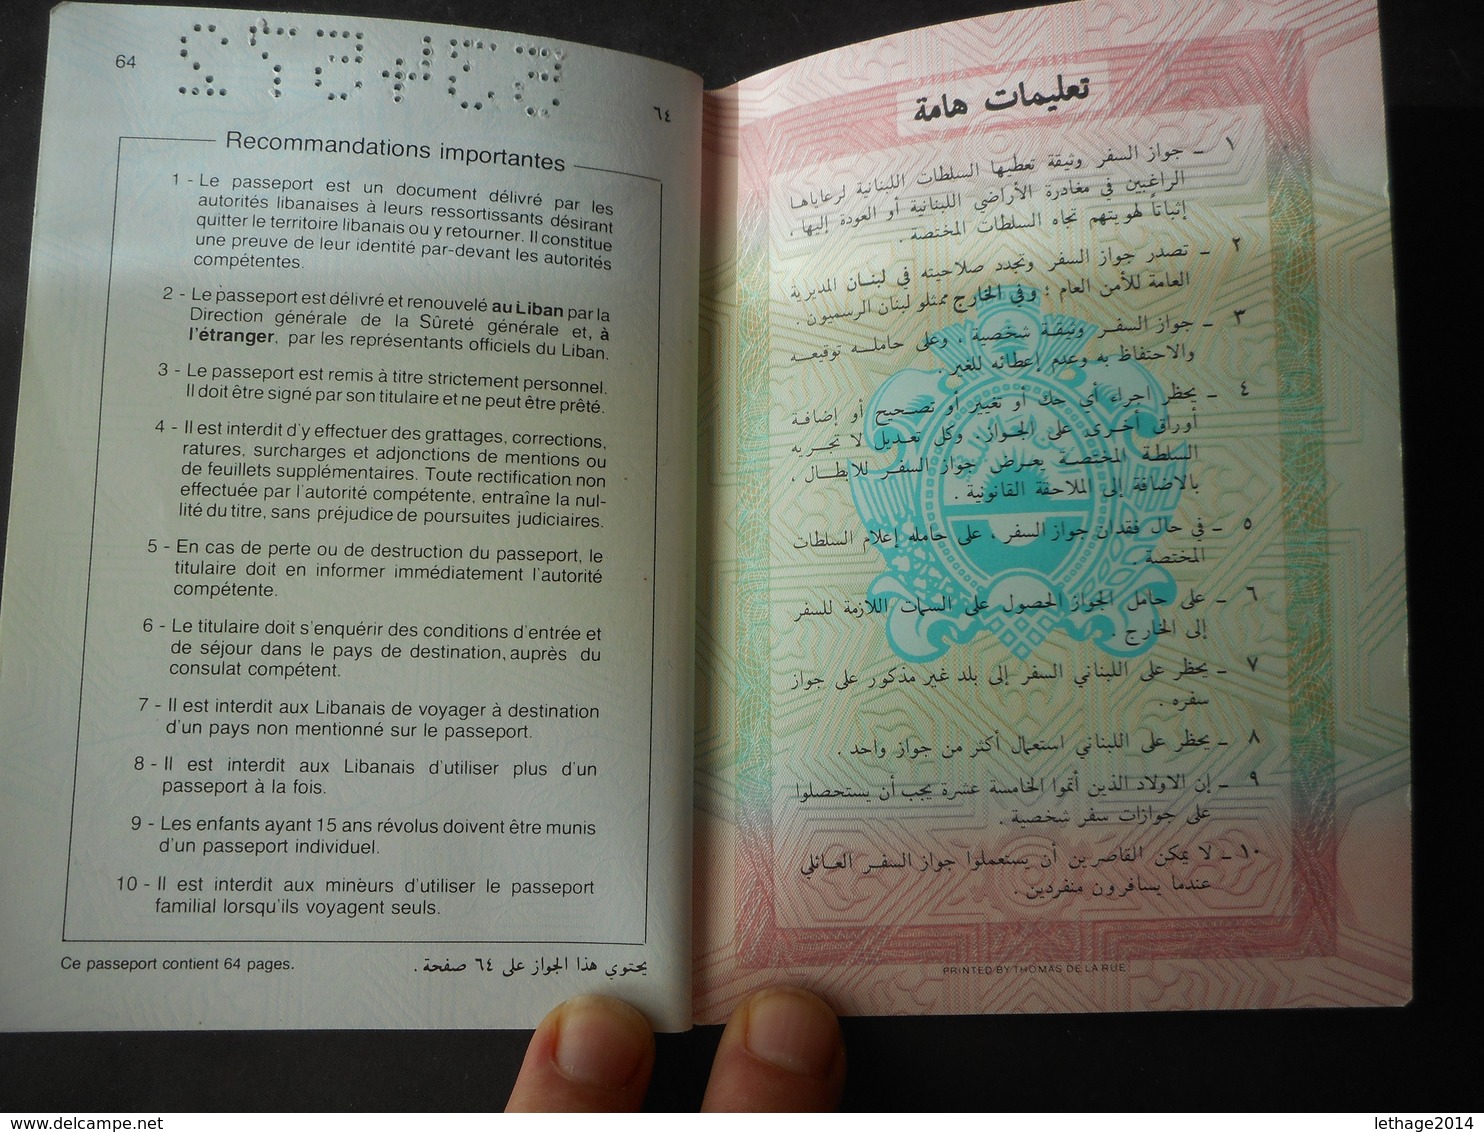 64
٦٤
Recommandations importantes
1 - Le passeport est un document délivré par les
autorités libanaises à leurs ressortissants désirant
quitter le territoire libanais ou y retourner. Il constitue
une preuve de leur identité par-devant les autorités
compétentes.
2 - Le passeport est délivré et renouvelé au Liban par la
Direction générale de la Sûreté générale et, à
l'étranger, par les représentants officiels du Liban.
3 - Le passeport est remis à titre strictement personnel.
Il doit être signé par son titulaire et ne peut être prêté.
4 - Il est interdit d'y effectuer des grattages, corrections,
ratures, surcharges et adjonctions de mentions ou
de feuillets supplémentaires. Toute rectification non
effectuée par l'autorité compétente, entraîne la nul-
lité du titre, sans préjudice de poursuites judiciaires.
5 - En cas de perte ou de destruction du passeport, le
titulaire doit en informer immédiatement l'autorité
compétente.
6 - Le titulaire doit s'enquérir des conditions d'entrée et
de séjour dans le pays de destination, auprès du
consulat compétent.
7 - Il est interdit aux Libanais de voyager à destination
d'un pays non mentionné sur le passeport.
8 - Il est interdit aux Libanais d'utiliser plus d'un
passeport à la fois.
9 - Les enfants ayant 15 ans révolus doivent être munis
d'un passeport individuel.
10 - Il est interdit aux mineurs d'utiliser le passeport
familial lorsqu'ils voyagent seuls.
Ce passeport contient 64 pages.
يحتوي هذا الجواز على ٦٤ صفحة .
تعليمات هامة
١ ـ جواز السفر وثيقة تعطيها السلطات اللبنانية لرعاياها
الراغبين في مغادرة الأراضي اللبنانية أو العودة إليها ،
إثباتاً لهويتهم تجاه السلطات المختصة .
٢ ـ تصدر جواز السفر وتجدد صلاحيته في لبنان المديرية
العامة للأمن العام ؛ وفي الخارج ممثلو لبنان الرسميون .
٣ ـ جواز السفر وثيقة شخصية ، وعلى حامله توقيعه
والاحتفاظ به وعدم إعطائه للغير .
٤ ـ يحظر اجراء أي حك أو تغيير أو تصحيح أو إضافة
أوراق أخرى على الجواز. وكل تعديل لا تجريه
السلطة المختصة يعرض جواز السفر للابطال ،
بالاضافة إلى الملاحقة القانونية .
٥ ـ في حال فقدان جواز السفر ، على حامله إعلام السلطات
المختصة .
٦ ـ على حامل الجواز الحصول على السمات اللازمة للسفر
إلى الخارج .
٧ ـ يحظر على اللبناني السفر إلى بلد غير مذكور على جواز
سفره .
٨ ـ يحظر على اللبناني استعمال أكثر من جواز واحد .
٩ ـ إن الاولاد الذين أتموا الخامسة عشرة يجب أن يستحصلوا
على جوازات سفر شخصية .
١٠ ـ لا يمكن القاصرين أن يستعملوا جواز السفر العائلي
عندما يسافرون منفردين .
PRINTED BY THOMAS DE LA RUE
delcampe.net
lethage2014